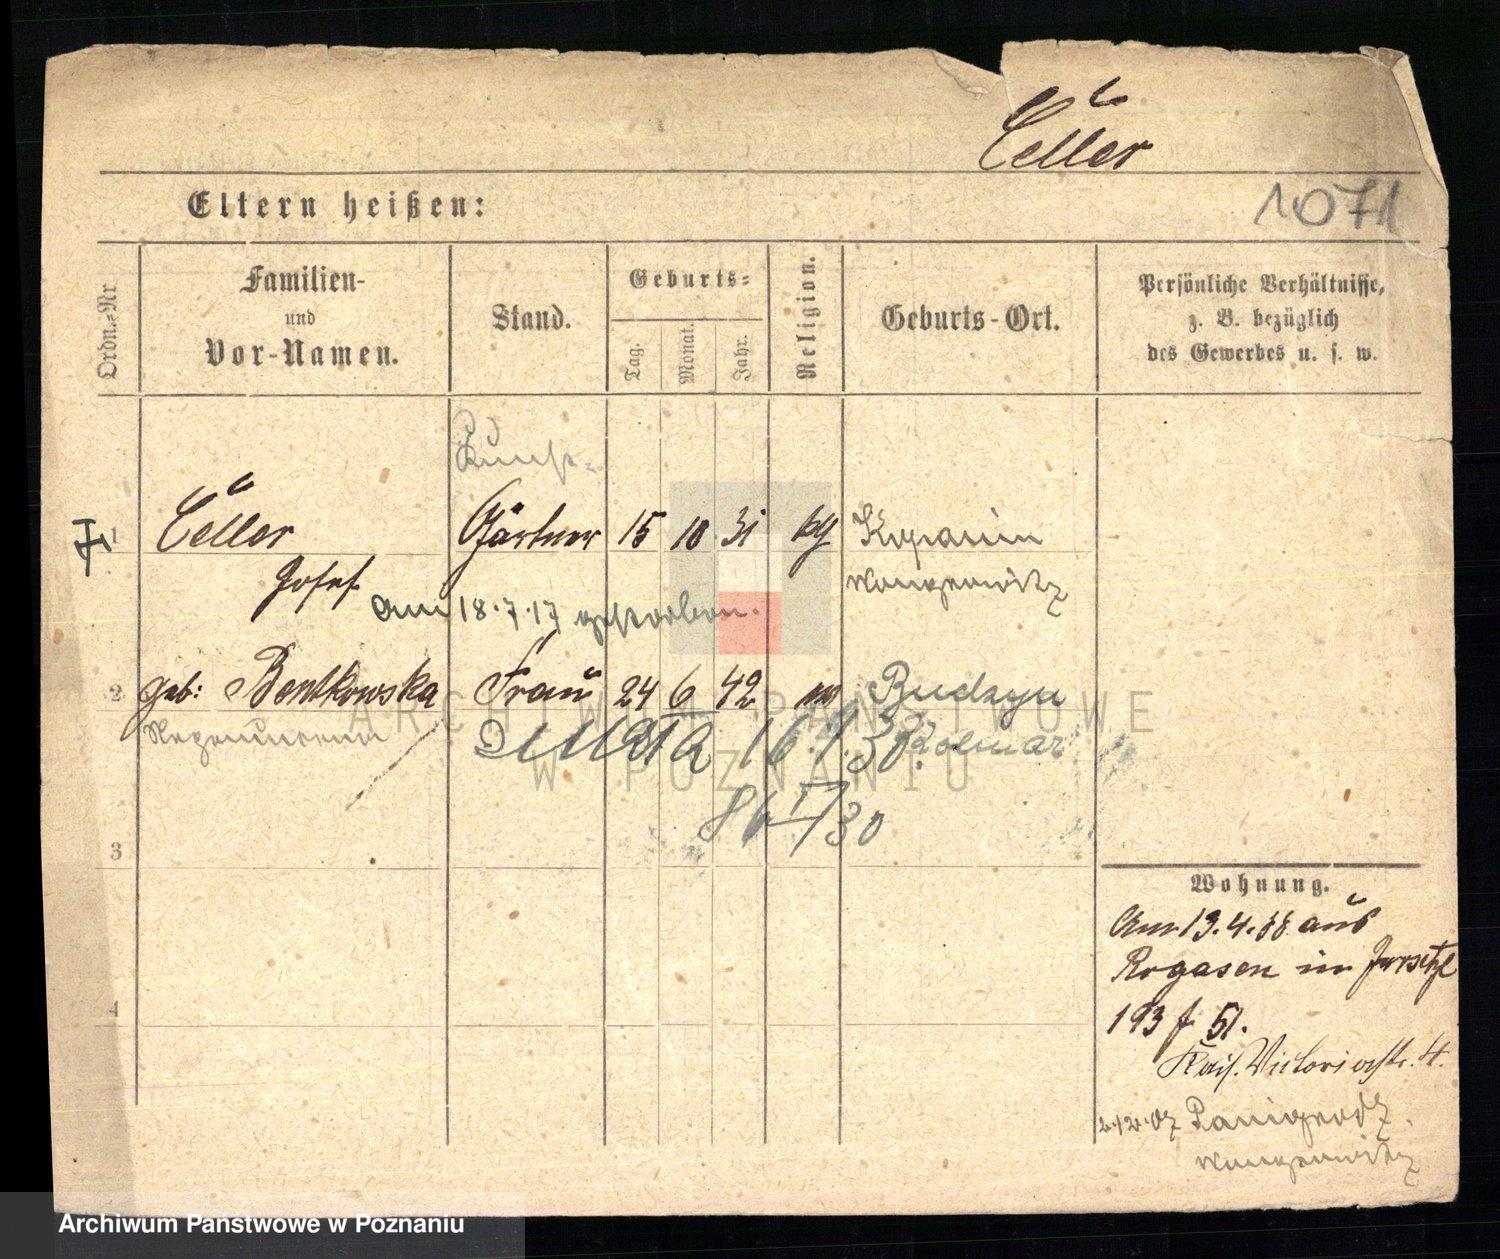 Celler
1.071
Eltern heißen:
Ordn.-Nr
Familien-
und
Vor-Namen.
Stand.
Geburts-
Tag.
Monat.
Jahr.
Religion.
Geburts-Ort.
Persönliche Verhältnisse,
z. B. bezüglich
des Gewerbes u. s. w.
Kunst-
1 Celler Gärtner 15 10 31 Kopanin
Josef Wongrowitz
am 18.7.17 gestorben.
2 geb: Bentkowska Frau 24 6 42 Budzyn
Kolmar
16.1.30
3
4
Wohnung.
Am 13.4.88 aus
Rogasen in Jersitz
193 f 51.
Kais. Victoriastr. 4.
2.12.07 Panigrodz.
Wongrowitz
ARCHIWUM PAŃSTWOWE
W POZNANIU
Archiwum Państwowe w Poznaniu